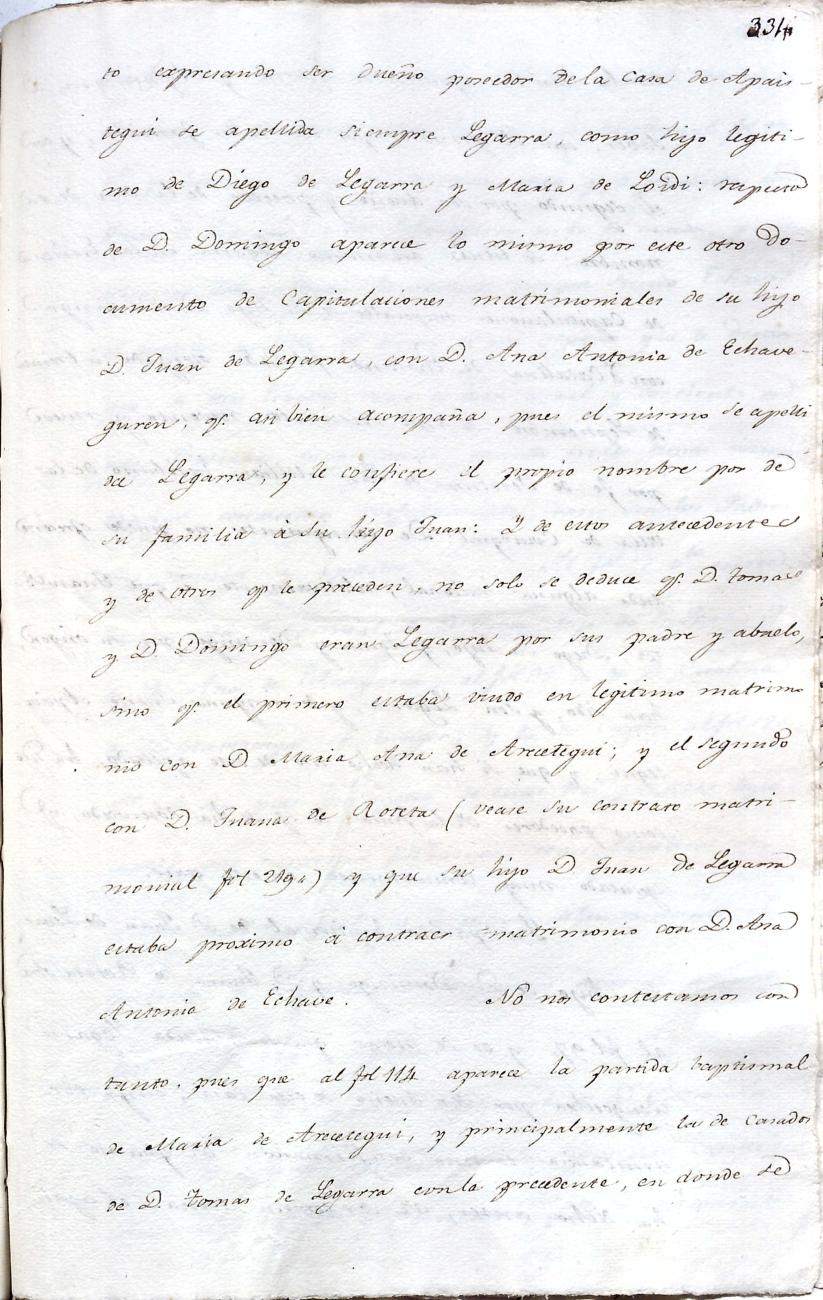 334
to expresando ser dueño poseedor de la Casa de Apais-
tegui se apellida siempre Legarra, como hijo legiti-
mo de Diego de Legarra y Maria de Loidi: respecto
de D. Domingo aparece lo mismo por este otro Do-
cumento de Capitulaciones matrimoniales de su hijo
D. Juan de Legarra, con D. Ana Antonia de Echave-
guren, qe. an bien acompaña, pues el mismo se apelli
da Legarra, y le confiere el propio nombre por de
su familia à su hijo Juan: Y de estos antecedentes
y de otros qe le preceden, no solo se deduce qe. D. Tomas
y D. Domingo eran Legarra por sus padre y abuelo,
sino qe. el primero estaba unido en legitimo matrimo
nio con D. Maria Ana de Arecetegui; y el segundo
con D. Juana de Roteta (vease su contrato matri-
monial fol 219.) y que su hijo D Juan de Legarra
estaba proximo à contraer matrimonio con D. Ana
Antonia de Echave. No nos contestamos con
tanto, pues que al fol 114 aparece la partida baptismal
de Maria de Arecetegui, y principalmente la de Casados
de D. Tomas de Legarra con la precedente, en donde se